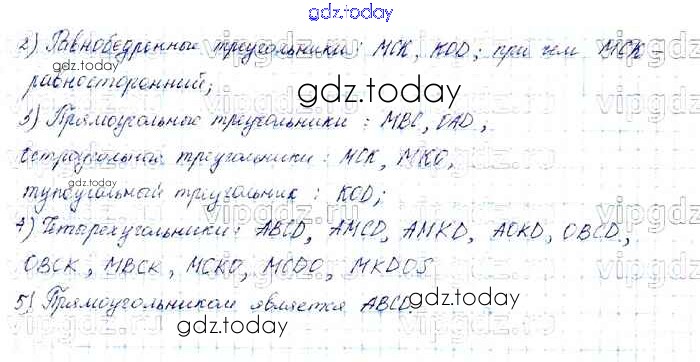 gdz.today
2) Равнобедренные треугольники: МСК, KOD; при чем МСК
равносторонний;
gdz.today
3) Прямоугольные треугольники: МВС, OAD,
остроугольный треугольники: МСК, МКО,
gdz.today
тупоугольный треугольник: KOD;
4) Четырехугольники: ABCD, AMCD, AMKD, AOKD, OBCD,
OBCK, MBCK, MCKO, MCDO, MKDOS
5) Прямоугольником является ABCD.
gdz.today
gdz.today